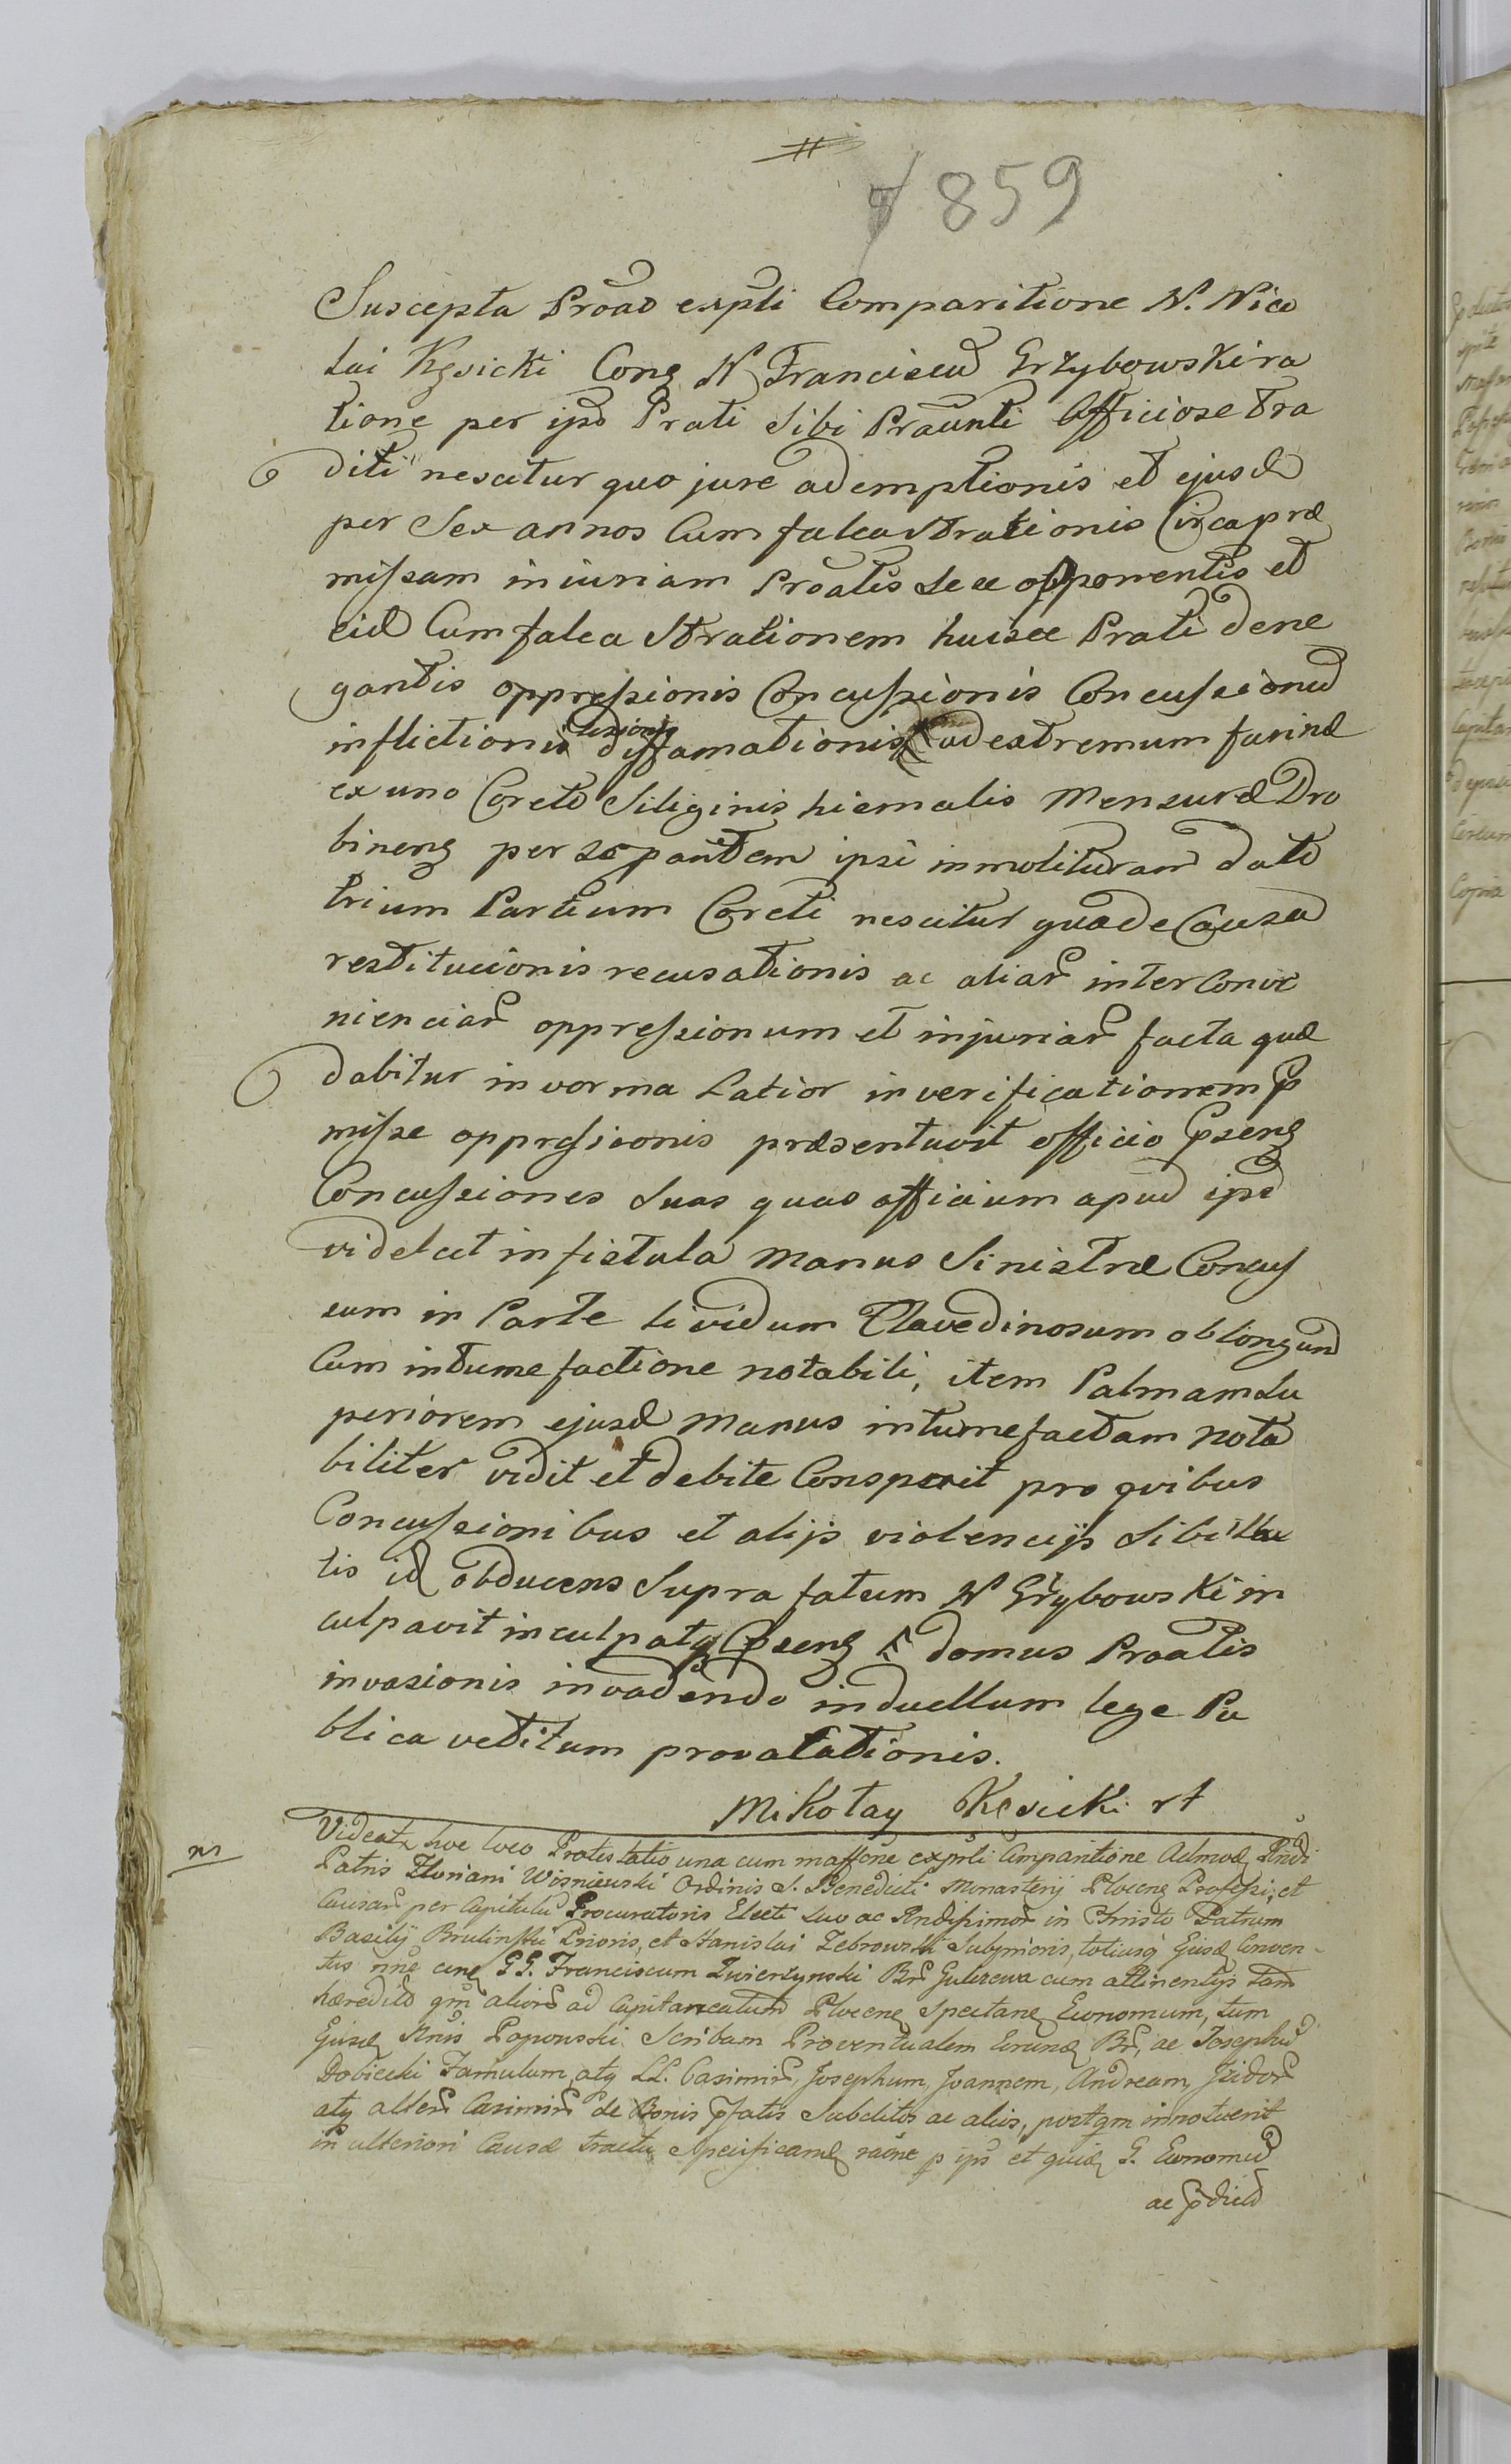 859
Suscepta Proao expti Comparitione N. Nico
lai Kęsicki Conq N Franciscũ Grzybowski ra
tione per ipsũ Prati sibi Praunti Officiose tra
diti nescitur quo jure ademptionis et ejusd
per Sex annos Cum falcastrationis Circa præ
missam iniuriam Proatis sese opponentis et
eid Cum falcastrationem huisce Prati dene
gantis oppressionis Concussionis Concussionũ
inflictionis lesionis diffamationis ad extremum farinæ
ex uno Coreto Siliginis hiemalis Mensuræ Dro
binenq per ipsi in molituram dato
trium Partium Coreti nescitur qua de Causa
restitucionis recusationis ac aliar interConve
nienciar oppressionum et injuriar facta quæ
dabitur in vorma Latior in verificationem p
misse oppressionis præsentavit officio pseng
Concussiones suas quas officium apud ipsũ
videlcet in fistula manus Sinistræ Concus
sum in Parte lividum Flavedinosum oblongum
Cum intumefactione notabili, item Palmam su
periorem ejusd manus intumefactam nota
biliter vidit et debite Conspexit pro qvibus
Concussionibus et alijs violencijs sibi illa
tis id obducens supra fatum N Grzybowski in
culpavit inculpatq pseng et domus Proatis
invasionis invadendo in duellum lege Pu
blica vetitum provocationis.
Mikołay Kęsicki rt
ns
Videatr hoc loco Protestatio una cum maffõne exprli Comparitione Admod Rndi
Patris Floriani Wisniewski Ordinis S. Benedicti Monasterij Plocenq Professi, et
Causar per Capitulũ Procuratoris Electi suo ac Rndissimor in Christo Patrum
Basilij Brulinski Prioris, et Stanislai Zebrowski Subprioris, totiusq Ejusd Conven-
tus nne cong GG. Franciscum Zwierzynski Br Gulczewa cum attinentijs tam
hæreditd qm alior ad Capitaneatum Plocenq Spectanq Œconomum, tum
Ejusd Popowski Scribam Proventualem Eorund Br, ac Josephũ
Dobiecki Famulum, atq LL. Casimir, Josephum, Joannem, Andream, Izidor
atq alter Casimir de Bonis pfatis Subditos ac alios, postqm innotuerit
in ulteriori Causæ tractu Specificand raõne p ips et quid G. Œconomũ
ac pdictũ